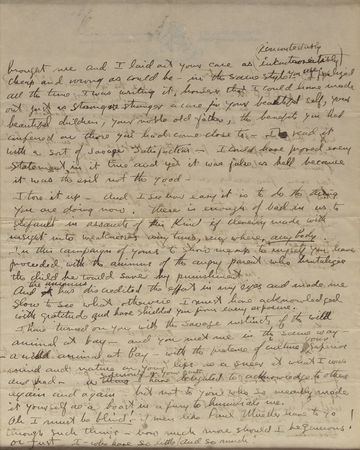 remorselessly
brought me and I laid out your case as
cheap and wrong as could be – in the same style you
all the time I was writing it, however that I could have made
out just as strong a stronger a case for your beautiful self, your
beautiful children, your noble old father, the benefits you had
conferred on those you had come close to – I read it
with a sort of savage satisfaction – I could have proved every
statement in it true and yet it was false as hell because
it was the evil not the good –
I tore it up – and I see how easy it is to do the thing
you are doing now. There is enough of bad in us to
in assaults of this kind if cleverly made with
insight into weaknesses any time, any where, any body.
In this campaign of yours to show me up to myself you have
proceeded with the animus of the angry parent who brutalizes
the child he would save by punishment
And the animus has discredited the effort in my eyes and made me
slow to see what otherwise I must have acknowledged
with gratitude and have shielded you from every exposure
I have turned on you with the savage instinct of the wild
animal at bay – and you met me in the same way –
a wild animal at bay – with the pretence of culture superior
mind and nature your lips as a sneer at what I was
and had – in of have delighted to acknowledge to others
again and again – but not to you who so meanly made
it yourself as a boast in a fury to humiliate me.
Ah I must be blind! if men like Paul Mueller have to go
through such things – how much more should I be generous!
or just. I who have so little and so much!